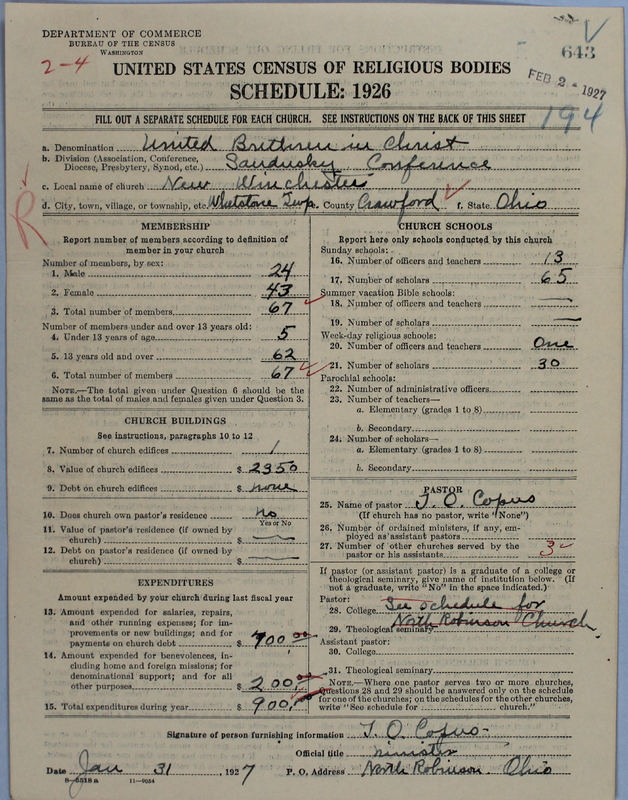 DEPARTMENT OF COMMERCE
BUREAU OF THE CENSUS
WASHINGTON
643
2-4
UNITED STATES CENSUS OF RELIGIOUS BODIES
FEB 2 - 1927
SCHEDULE: 1926
FILL OUT A SEPARATE SCHEDULE FOR EACH CHURCH. SEE INSTRUCTIONS ON THE BACK OF THIS SHEET
194
a. Denomination United Brethren in Christ
b. Division (Association, Conference, Diocese, Presbytery, Synod, etc.) Sandusky Conference
c. Local name of church New Winchester
d. City, town, village, or township, etc. Whetstone Twp. County Crawford f. State Ohio
R
MEMBERSHIP
Report number of members according to definition of
member in your church
Number of members, by sex:
1. Male 24
2. Female 43
3. Total number of members 67
Number of members under and over 13 years old:
4. Under 13 years of age 5
5. 13 years old and over 62
6. Total number of members 67
NOTE.—The total given under Question 6 should be
same as the total of males and females given under Question 3.
CHURCH BUILDINGS
See instructions, paragraphs 10 to 12
7. Number of church edifices 1
8. Value of church edifices $ 2350
9. Debt on church edifices $ none
10. Does church own pastor's residence No
Yes or No
11. Value of pastor's residence (if owned by
church) $
12. Debt on pastor's residence (if owned by
church) $
EXPENDITURES
Amount expended by your church during last fiscal year
13. Amount expended for salaries, repairs,
and other running expenses; for im-
provements or new buildings; and for
payments on church debt $ 700 00
14. Amount expended for benevolences, in-
cluding home and foreign missions; for
denominational support; and for all
other purposes $ 200.00
15. Total expenditures during year $ 900.00
CHURCH SCHOOLS
Report here only schools conducted by this church
Sunday schools:
16. Number of officers and teachers 13
17. Number of scholars 65
Summer vacation Bible schools:
18. Number of officers and teachers —
19. Number of scholars —
Week-day religious schools:
20. Number of officers and teachers One
21. Number of scholars 30
Parochial schools:
22. Number of administrative officers
23. Number of teachers—
a. Elementary (grades 1 to 8)
b. Secondary
24. Number of scholars—
a. Elementary (grades 1 to 8)
b. Secondary
PASTOR
25. Name of pastor T. O. Copus
(If church has no pastor, write "None")
26. Number of ordained ministers, if any, em-
ployed as assistant pastors
27. Number of other churches served by the
pastor or his assistants 3
If pastor (or assistant pastor) is a graduate of a college or
theological seminary, give name of institution below. (If
not a graduate, write "No" in the space indicated.)
Pastor:
28. College See schedule for
29. Theological seminary North Robinson Church.
Assistant pastor:
30. College
31. Theological seminary
NOTE.—Where one pastor serves two or more churches,
Questions 28 and 29 should be answered only on the schedule
for one of the churches; on the schedules for the other churches,
write "See schedule for church."
Signature of person furnishing information T. O. Copus
Official title minister
Date Jan 31, 1927 P. O. Address North Robinson. Ohio
8-5518 a 11-9034